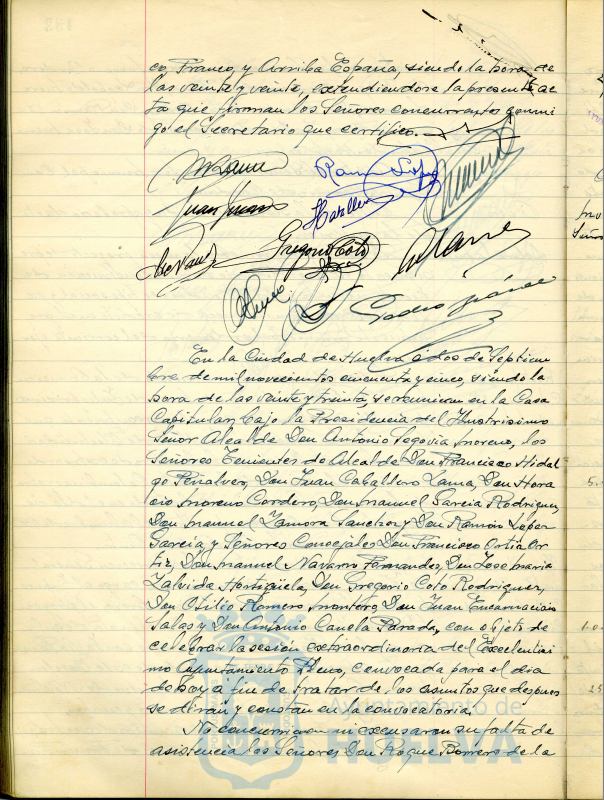 co, Franco, y Arriba España, siendo la hora de
las veinte y veinte, extendiendose la presente ac-
ta que firman los Señores concurrentes conmi
go el Secretario que certifico.
Ramón López
Juan
Gregorio Coto
Pedro
En la Ciudad de Huelva a dos de Septiem
bre de mil novecientos cincuenta y cinco, siendo la
hora de las veinte y treinta, se reunieron en la Casa
Capitular, bajo la Presidencia del Ilustrisimo
Señor Alcalde Don Antonio Segovia Moreno, los
Señores Tenientes de Alcalde Don Francisco Hidal
go Peñalver, Don Juan Caballero Lama, Don Hora
cio Moreno Cordero, Don Manuel Garcia Rodriguez,
Don Manuel Zamora Sanchez y Don Ramón López
Garcia y Señores Concejales Don Francisco Ortiz Or
tiz, Don Manuel Navarro Fernandez, Don Jose Maria
Zalvida Hortigüela, Don Gregorio Coto Rodriguez,
Don Otilio Romero Montero, Don Juan Encarnación
Salas y Don Antonio Canela Parada, con objeto de
celebrar la sesión extraordinaria del Excelentisi
mo Ayuntamiento Pleno, convocada para el dia
de hoy a fin de tratar de los asuntos que despues
se dirán y constan en la convocatoria.
No concurrieron ni excusaron su falta de
asistencia los Señores, Don Roque Borrero de la
Ayuntamiento de
HUELVA